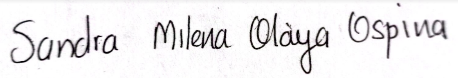 Sandra Milena Olaya Ospina